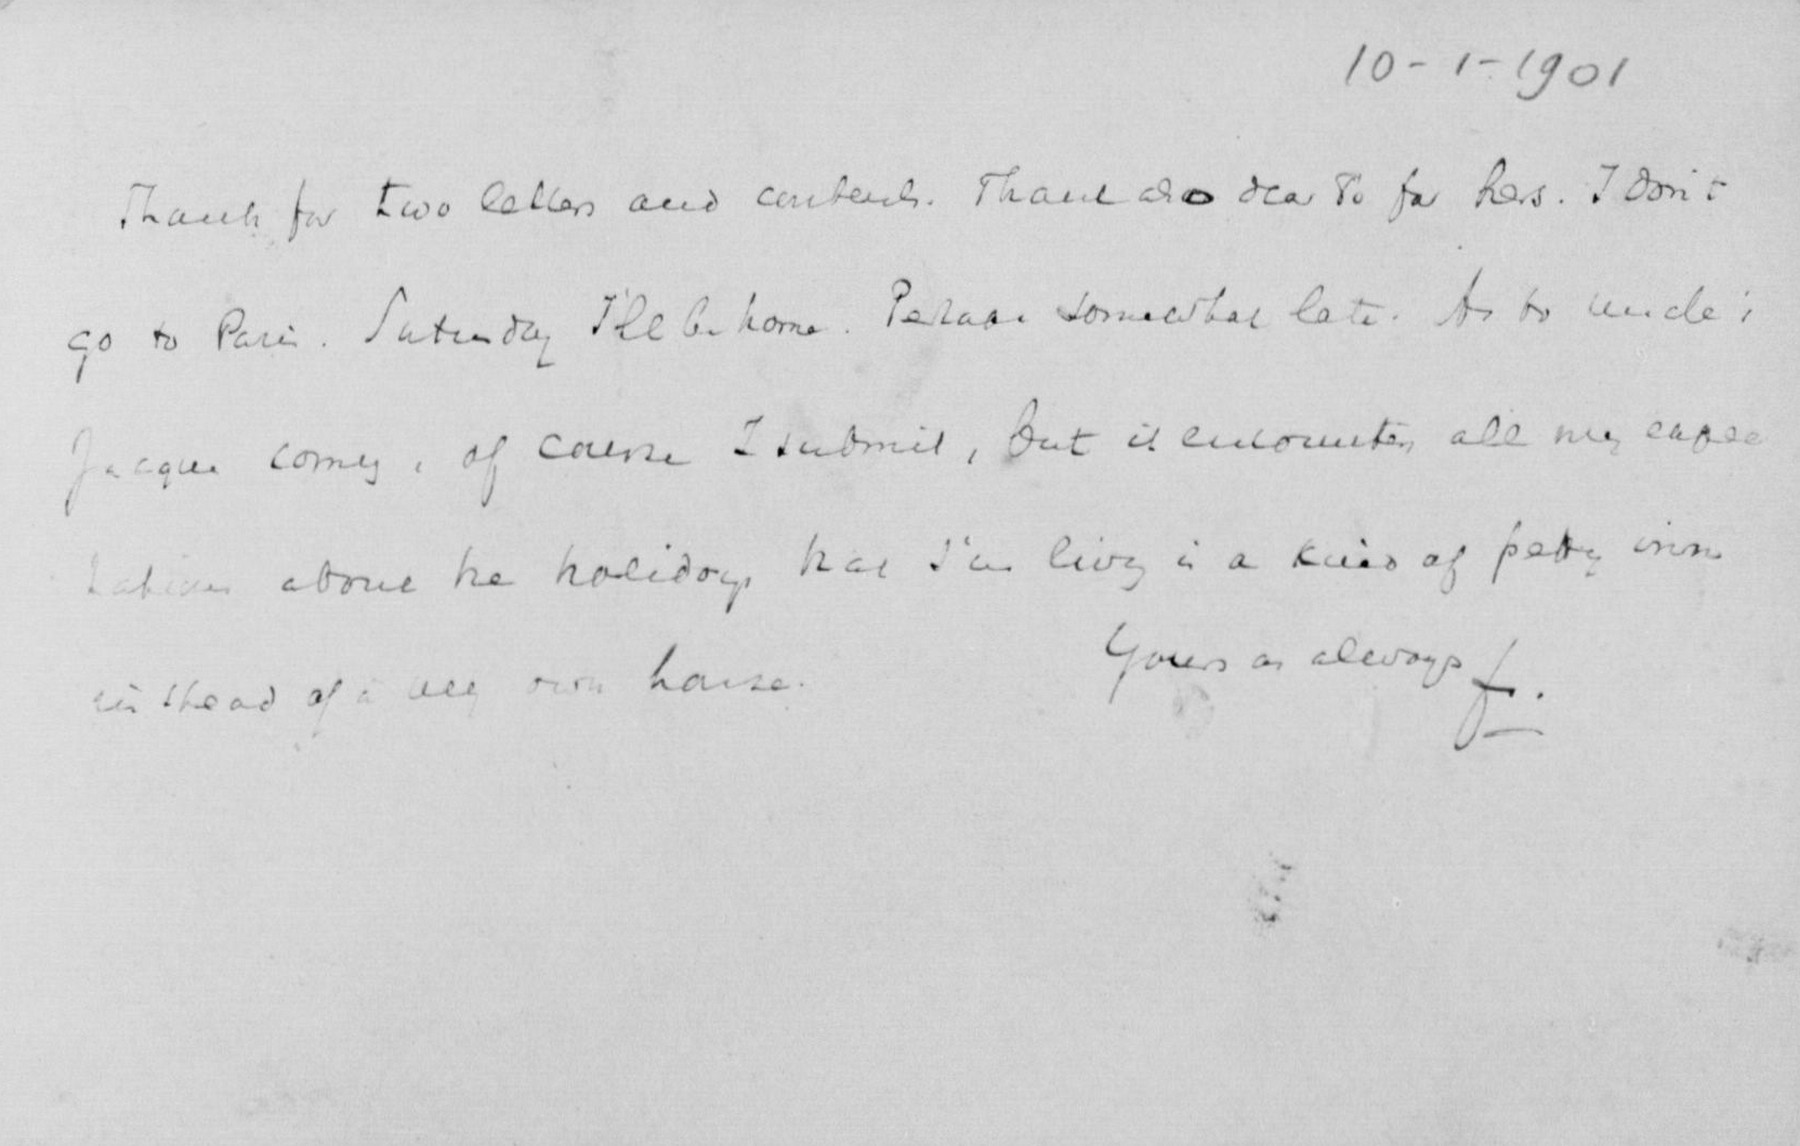 10-1-1901
Thanks for two letters and contents. Thank also dear To for hers. I don't
go to Paris. Saturday I'll be home. Perhaps somewhat late. As to uncle's
Jacques coming, of course I submit, but it encounters all my expec
tations about the holidays that I'm living in a kind of petty inn
instead of in my own house.
Yours as always f.